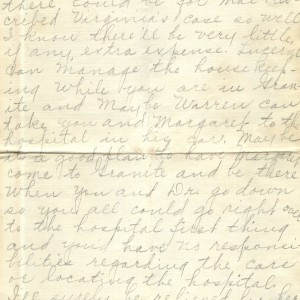 there could be for
cribed Virginia's case so well
I know there'll be very little,
if any, extra expense.
can manage the housekeep-
ing while you are in Gran-
ite and Maybe Warren can
take you and Margaret to the
hospital in his car. Maybe
its a good plan to have Margaret
come to Granite and be there
When you and Dr. go down
so you all could go right over
to the hospital first thing
and you'd have no responsi-
bilities regarding the cars
or locating the hospital.
I'll surely be relieved